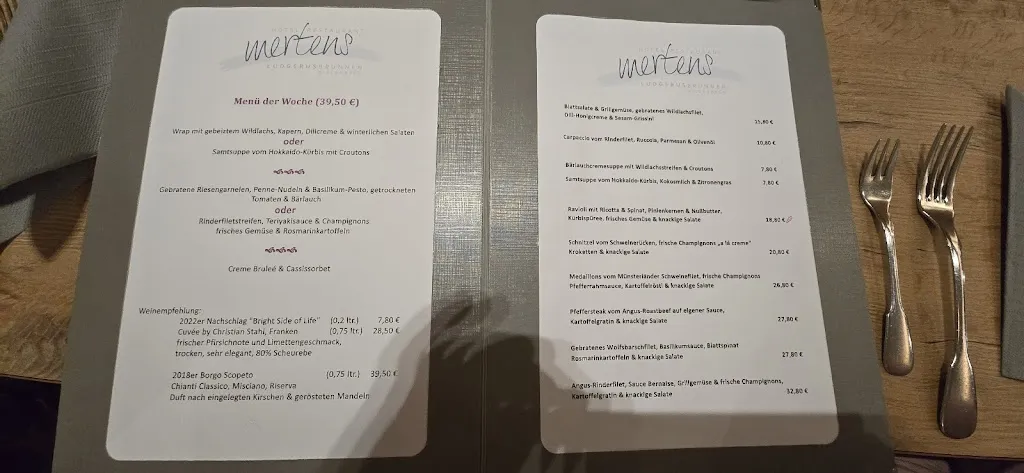 mertens
Menü der Woche (39,50 €)
Wrap mit gebeiztem Wildlachs, Kapern, Dillcreme & winterlichen Salaten
oder
Samtsuppe vom Hokkaido-Kürbis mit Croutons
Gebratene Riesengarnelen, Penne-Nudeln & Basilikum-Pesto, getrockneten
Tomaten & Bärlauch
oder
Rinderfiletstreifen, Teriyakisauce & Champignons
frisches Gemüse & Rosmarinkartoffeln
Creme Bruleé & Cassissorbet
Weinempfehlung:
2022er Nachschlag "Bright Side of Life" (0,2 ltr.) 7,80 €
Cuvée by Christian Stahl, Franken (0,75 ltr.) 28,50 €
frischer Pfirsichnote und Limettengeschmack,
trocken, sehr elegant, 80% Scheurebe
2018er Borgo Scopeto (0,75 ltr.) 39,50 €
Chianti Classico, Misciano, Riserva
Duft nach eingelegten Kirschen & gerösteten Mandeln
mertens
Blattsalate & Grillgemüse, gebratenes Wildlachsfilet,
Dill-Honigcreme & Sesam-Grissini 15,80 €
Carpaccio vom Rinderfilet, Rucola, Parmesan & Olivenöl 10,80 €
Bärlauchcremesuppe mit Wildlachsstreifen & Croutons 7,80 €
Samtsuppe vom Hokkaido-Kürbis, Kokosmilch & Zitronengras 7,80 €
Ravioli mit Ricotta & Spinat, Pinienkernen & Nußbutter,
Kürbispüree, frisches Gemüse & knackige Salate 18,80 €
Schnitzel vom Schweinerücken, frische Champignons „a´lá creme"
Kroketten & knackige Salate 20,80 €
Medaillons vom Münsterländer Schweinefilet, frische Champignons
Pfefferrahmsauce, Kartoffelrösti & knackige Salate 26,80 €
Pfeffersteak vom Angus-Roastbeef auf eigener Sauce,
Kartoffelgratin & knackige Salate 27,80 €
Gebratenes Wolfsbarschfilet, Basilikumsauce, Blattspinat
Rosmarinkartoffeln & knackige Salate 27,80 €
Angus-Rinderfilet, Sauce Bernaise, Grillgemüse & frische Champignons,
Kartoffelgratin & knackige Salate 32,80 €